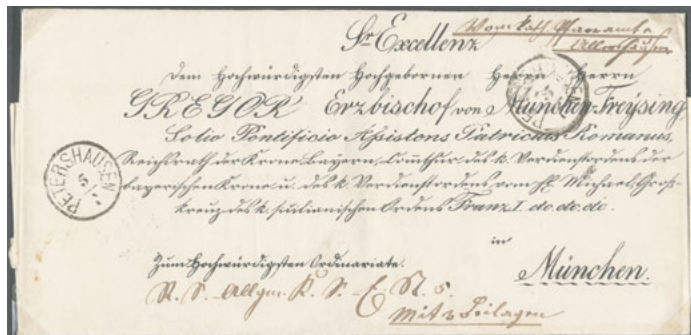 Sr Excellenz
Vom kath. Pfarramte
Dem Hochwürdigsten Hochgebornen Herrn Herrn
GREGOR Erzbischof von München-Freysing
Solio Pontificio Assistens Patricius Romanus,
Reichsrath der Krone Bayern, Comthur des k. Verdienstordens der
bayerischen Krone u. des k. Verdienstordens vom hl. Michael, Groß-
kreuz des k. sicilianischen Ordens Franz I. do. do. do.
PETERSHAUSEN
5
1
in
München.
Zum Hochwürdigsten Ordinariate.
R. S. Allgm. K. S.
Mit 3 Beilagen